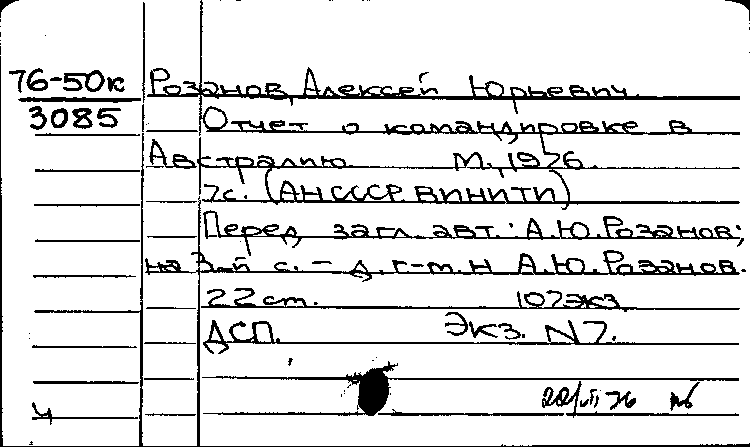 76-50к Розанов, Алексей Юрьевич.
3085 Отчет о командировке в
Австралию М., 1976.
7с. (АН СССР. ВИНИТИ)
Перед загл. авт.: А.Ю.Розанов;
на 3-й с. – д. г-м.н А.Ю.Розанов.
22см. 107экз.
ДСП. Экз. N7.
ч